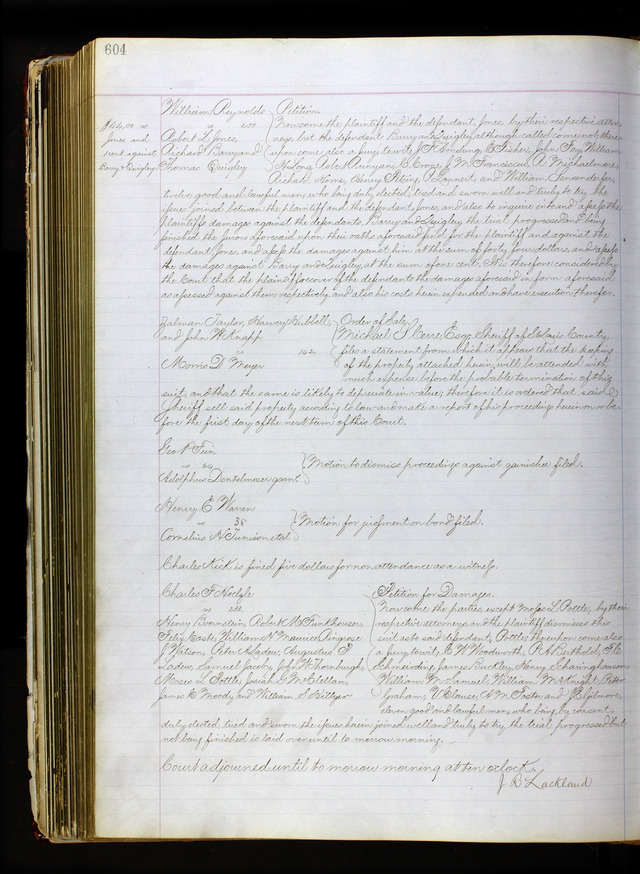 604
William Reynolds } Petition
vs
Robert L Jones
Richard Barry and
Thomas Quigley
$44.00 vs
Jones and
1 cent against
Barry & Quigley
Now come the plaintiff and the defendant, Jones, by their respective attor-
neys, but the defendants Barry and Quigley although called come not, there-
upon come also a jury to wit; J H Ameling, E Fisher, John Fry, William
McLong, Robert C George, J M Franciscus, A Michael
Richard Horne, Henry and William
twelve good and lawful men, who being duly elected, tried and sworn well and truly to try the
issue joined between the plaintiff and the defendant Jones, and also to inquire into and assess the
plaintiffs damages against the defendants, Barry and Quigley, the trial progressed and being
finished the Jurors aforesaid upon their oaths aforesaid find for the plaintiff and against the
defendant Jones, and assess the damages against him at the sum of forty four dollars, and assess
the damages against Barry and Quigley, at the sum of one cent. It is therefore considered by
the Court that the plaintiff recover of the defendants the damages aforesaid in form aforesaid
as assessed against them respectively, and also his costs herein expended and have execution therefor.
Zalman Taylor, Harvey Hubbell,
and John W Knapp
vs 142
Morris D Meyer
Order of Sale,
Michael S Cerre, Esqr, Sheriff of St Louis County,
files a statement from which it appears that the keeping
of the property attached herein, will be attended with
much expense before the probable termination of this
suit, and that the same is likely to depreciate in value; therefore it is ordered that said
Sheriff sell said property according to law and make a report of his proceedings herein on or be-
fore the first day of the next term of this Court.
Geo P Fein
vs
Adolphus garnt.
} Motion to dismiss proceedings against garnishee filed.
Henry E Warren
vs 38
Cornelius N Tunison et al
} Motion for judgment on bond filed.
Charles Kick is fined five dollars for non attendance as a witness.
Charles F
vs
Henry Boernstein, Robert M Funkhouser,
Felix Coste, William N Maurice, Ringrose
J Watson, Peter A Ladew, Augustus P
Ladew, Samuel Jacoby, John W Thornburgh,
Moses L Pottle, Josiah S McClellan,
James C Moody and William S
Petition for Damages.
Now come the parties, except Moses L Pottle, by their
respective attorneys, and the plaintiff dismisses this
suit as to said defendant, Pottle; thereupon come also
a jury to wit, E W Woodworth, P A Berthold, H C
James Buckley, Henry
William M Samuel, William McKnight, Peter
Graham, Y Clause, A M Foster and
eleven good and lawful men, who being by consent
duly elected, tried and sworn the issues herein joined well and truly to try, the trial progressed but
not being finished is laid over until to morrow morning.
Court adjourned until to morrow morning at ten oclock.
J R Lackland